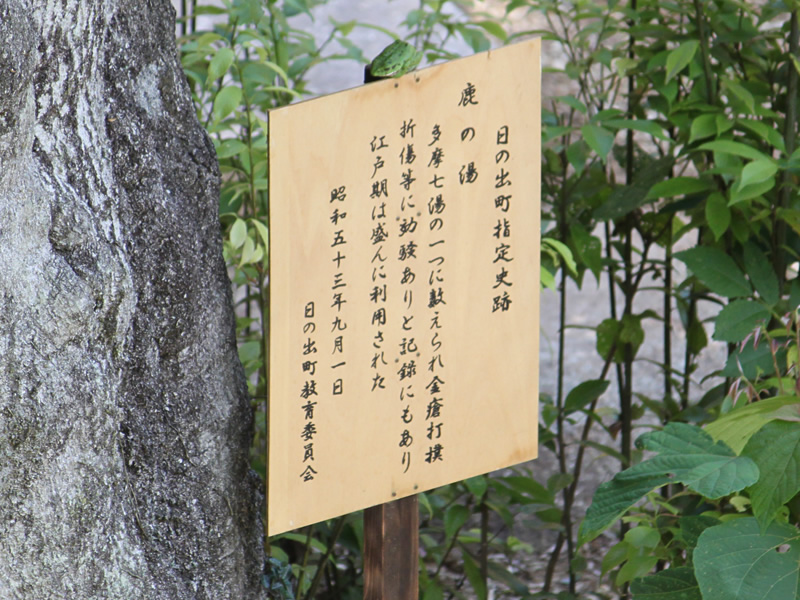 日の出町指定史跡
鹿の湯
多摩七湯の一つに数えられ金瘡打撲
折傷等に効験ありと記録にもあり
江戸期は盛んに利用された
昭和五十三年九月一日
日の出町教育委員会